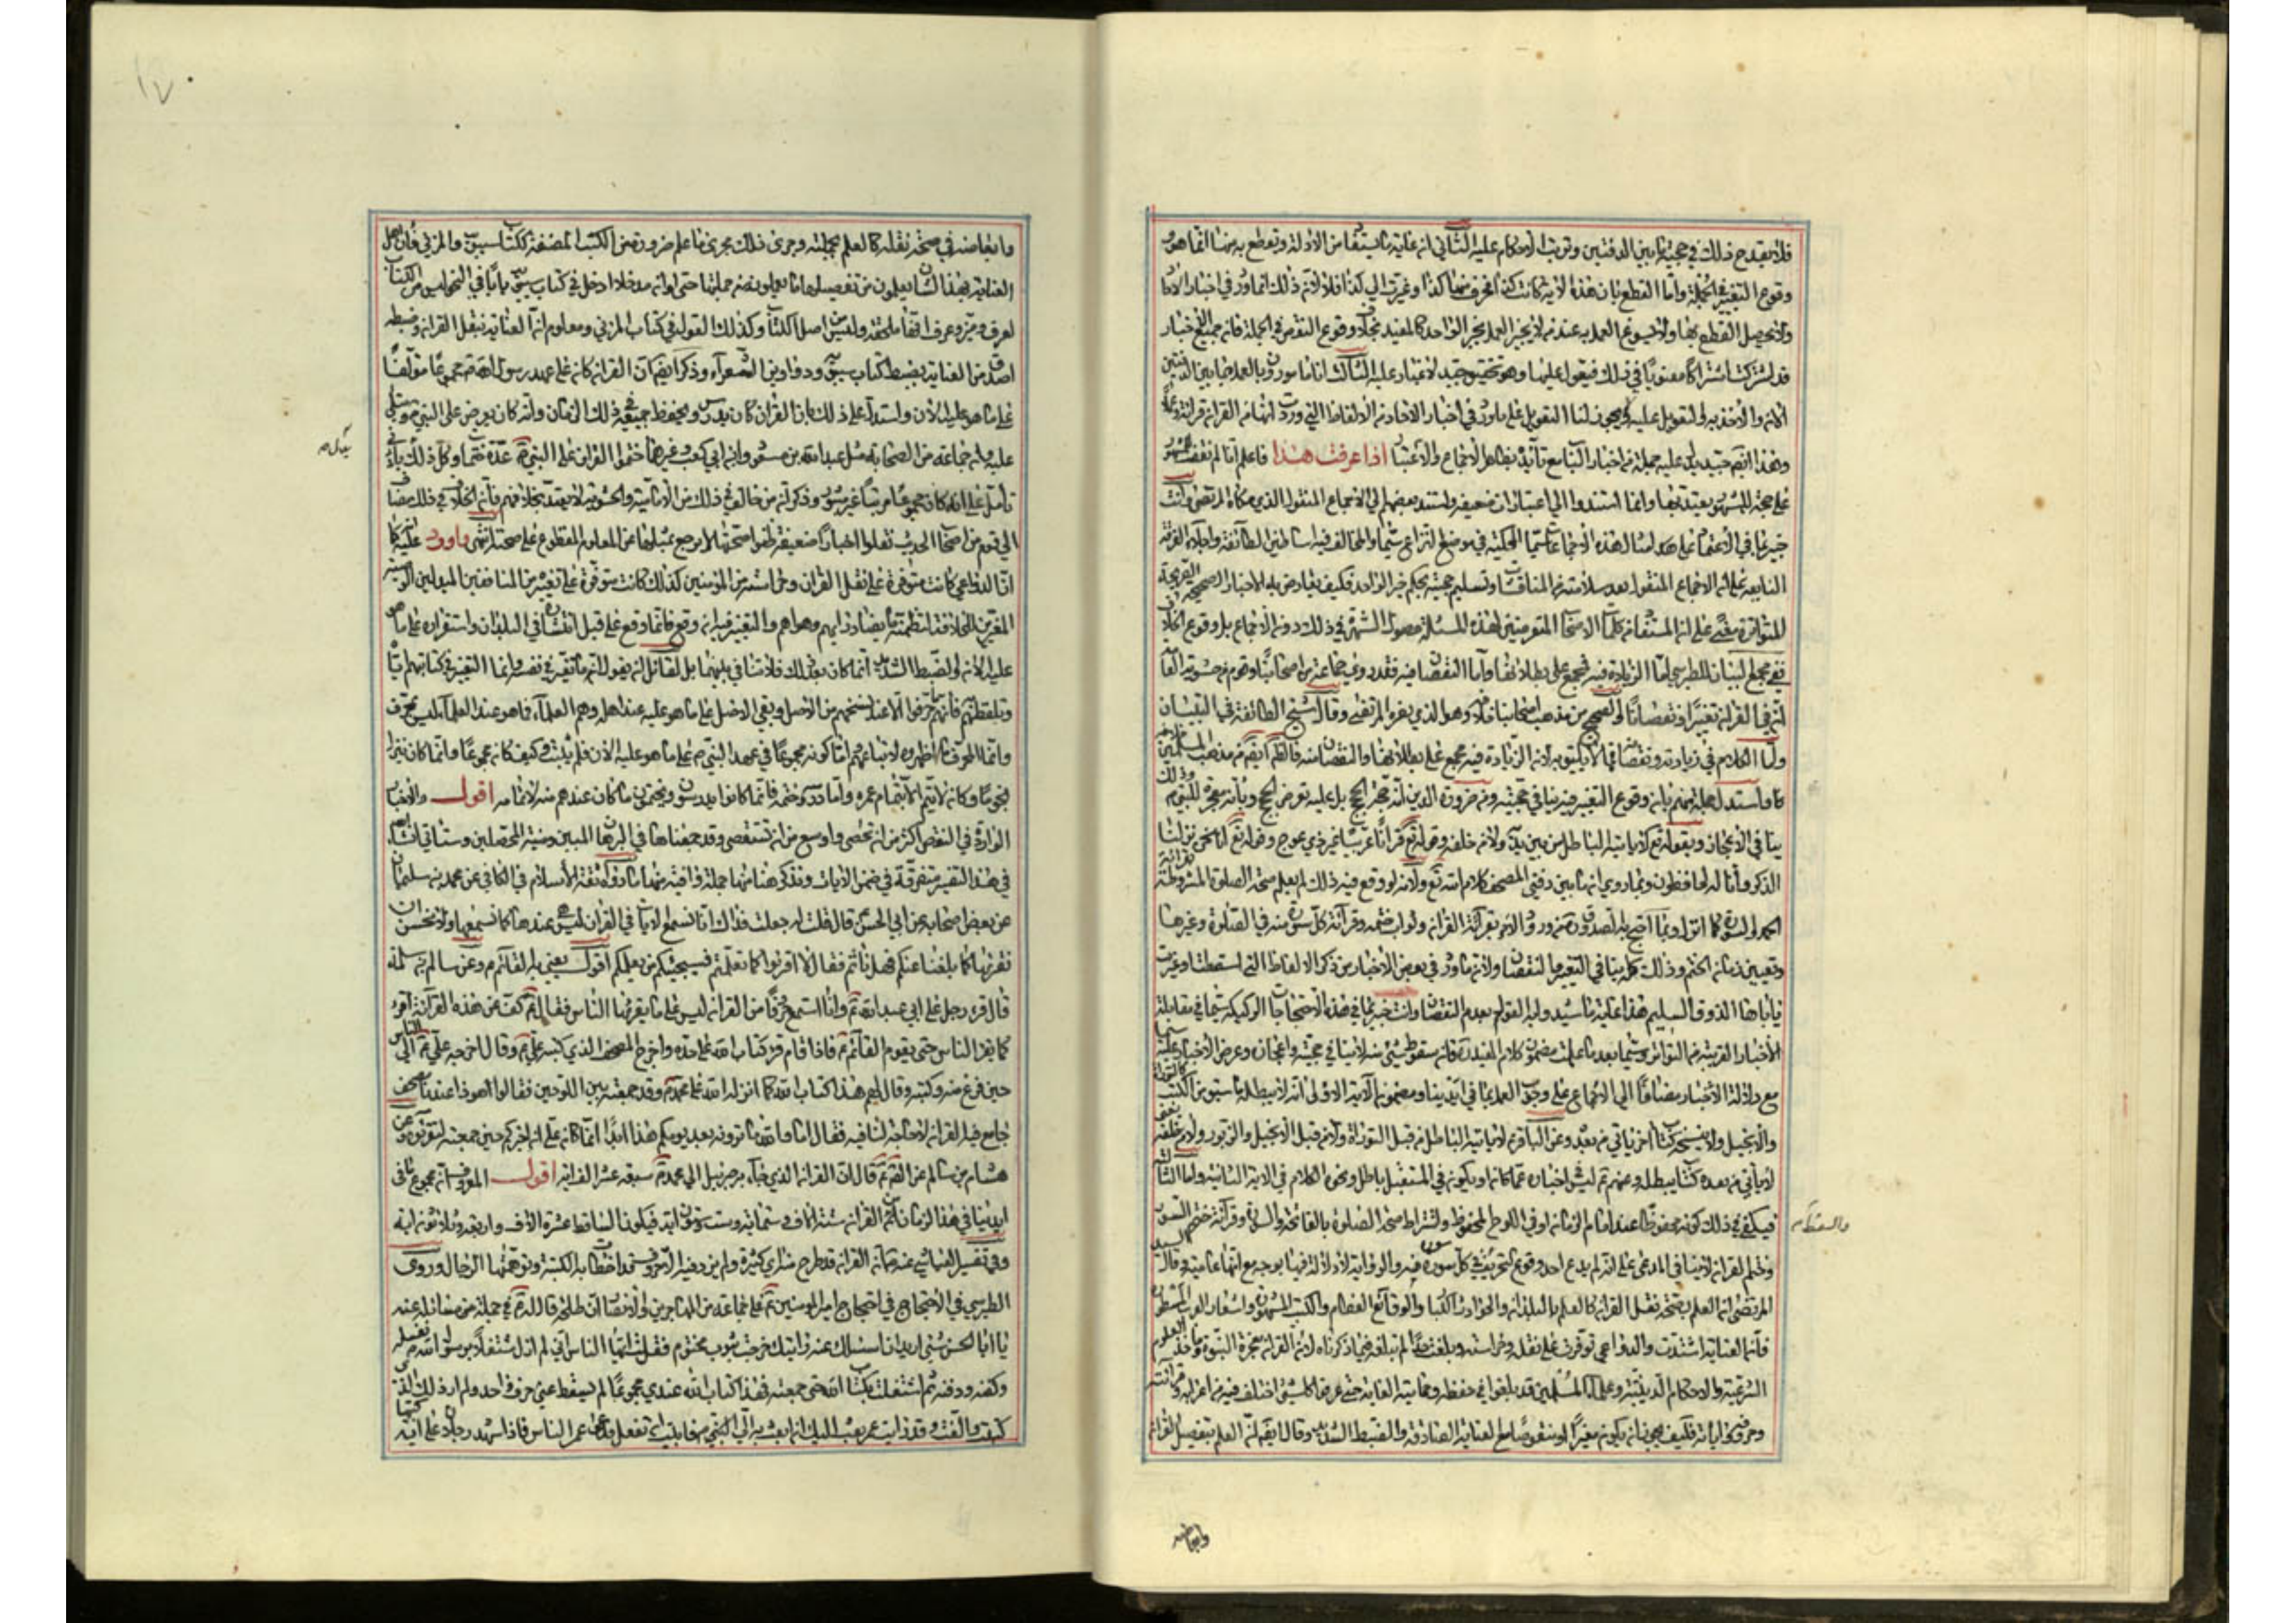 فلا يقدح ذلك في حجية ما بين الدفتين وترتب الاحكام عليه الثاني ان غاية ما يستفاد من الادلة ونقطع به منها انما هو
وقوع التغيير في الجملة واما القطع بان هذه الاية كانت كذا فحرف منها كذا وغيرت الى كذا فلا لانه ذلك انما ورد في اخبار الاحاد
ولا يحصل القطع بها ولا يسوغ العمل به عند من لا يجيز العمل بخبر الواحد كالمفيد بخلاف وقوع النقص في الجملة فانه جميع الاخبار
قد اشتركت اشتراكا معنويا في ذلك فيعول عليها وهو تحقيق جيد لا غبار عليه الثالث انا مامورون بالعمل بما بين الدفتين
الان والاخذ به والتعويل عليه ولا يجوز لنا التعويل على ما ورد في اخبار الاحاد من الالفاظ التي وردت انها من القران قرائة وعملا
وهذا ايضا جيد يدل عليه جملة من اخبار الباب مع تأيده بظاهر الاجماع والاعتبار اذا عرفت هذا فاعلم انا لم نقف
على حجة للمشهور يعتد بها وانما استندوا الى اعتبارات ضعيفة واستند بعضهم الى الاجماع المنقول الذي حكاه المرتضى وانت
خبير بما في الاعتماد على امثال هذه الاجماعات سيما المحكية في موضع النزاع سيما والمخالف فيه اساطين الطائفة واجلاء الفرقة
الناجية على ان الاجماع المنقول بعد سلامته من المناقشات وتسليم حجيته بحكم خبر الواحد فكيف يعارض به الاخبار الصحيحة الصريحة
المتواترة معنى على ان المستفاد من كلمات الاصحاب المتعرضين لهذه المسئلة حصول الشهرة في ذلك دون الاجماع بل وقوع الخلاف
ففي مجمع البيان للطبرسي اما الزيادة فيه فمجمع على بطلانها واما النقصان فيه فقد روى جماعة من اصحابنا وقوم من حشوية العامة
ان في القران تغييرا ونقصانا والصحيح من مذهب اصحابنا خلافه وهو الذي نصره المرتضى وقال شيخ الطائفة في التبيان
واما الكلام في زيادته ونقصانه فما لا يليق به لان الزيادة فيه مجمع على بطلانها والنقصان منه فالظاهر ايضا من مذهب المسلمين خلافه
وما استدل جملة منهم بان وقوع التغيير فيه ينافي حجيته وضرورة الدين انه حجة الحجج بل عليه تعرض الحجج وبأنه معجزة للنبوة وذلك
ينافي الاعجاز وبقوله تع لا ياتيه الباطل من بين يديه ولا من خلفه وقوله تع قرانا عربيا غير ذي عوج وقوله تع انا نحن نزلنا
الذكر وانا له لحافظون وبما روي ان ما بين دفتي المصحف كلام الله تع ولانه لو وقع فيه ذلك لم يعلم صحة الصلوة المشروطة بقرائة
الحمد والسورة كما انزل وبما احتج به الصدوق من ورود الامر بقرائة القران وثواب ختمه وقرائة كل سورة منه في الصلوة وغيرها
وتعيين زمان الختم وذلك كله ينافي التغيير والنقصان ولانه ما ورد في بعض الاخبار من ذكر الالفاظ التي اسقطت وغيرت
يأباها الذوق السليم هذا غاية ما شيدوا به القول بعدم النقصان وانت خبير بما في هذه الاحتجاجات الركيكة سيما في مقابلة
الاخبار القريبة من التواتر وسيما بعد ما علمت مضمون كلام المفيد ره فان سقوط شيء منه لا ينافي حجيته واعجازه وعرض الاخبار عليه سيما
مع دلالة الاخبار مضافا الى الاجماع على وجوب العمل بما في ايدينا ومضمون الاية الاولى انه لا يبطله ما سبق من الكتب كالتوراة
والانجيل ولا ينسخه كتاب اخر ياتي من بعده وعن الباقر ع لا ياتيه الباطل من قبل التوراة ولا من قبل الانجيل والزبور ولا من خلفه يعني
لا ياتي من بعده كتاب يبطله وعنهم ع ليس في اخباره عما كان ويكون في المستقبل باطل ونحو الكلام في الاية الثانية واما الثالثة
فيكفي في ذلك كونه محفوظا عند امام الزمان او في اللوح المحفوظ واشتراط صحة الصلوة بالفاتحة والسورة وقرائة ختم السور
وختم القران لا ينافي المدعى على انه لم يدع احد وقوع التحريف في كل سورة منه والرواية لا دلالة فيها بوجه مع انها عامية وقال السيد
المرتضى ان العلم بصحة نقل القران كالعلم بالبلدان والحوادث الكبار والوقائع العظام والكتب المشهورة واشعار العرب المسطورة
فان العناية اشتدت والدواعي توفرت على نقله وحراسته وبلغت حدا لم تبلغه فيما ذكرناه لان القران معجزة النبوة وماخذ العلوم
الشرعية والاحكام الدينية وعلماء المسلمين قد بلغوا في حفظه وحمايته الغاية حتى عرفوا كل شيء اختلف فيه من اعرابه وقرائته
وحروفه واياته فكيف يجوز ان يكون مغيرا او منقوصا مع العناية الصادقة والضبط الشديد وقال ايضا ان العلم بتفصيل القران
وابعاضه
وابعاضه في صحة نقله كالعلم بجملته وجرى ذلك مجرى ما علم ضرورة من الكتب المصنفة ككتاب سيبويه والمزني فان اهل
العناية بهذا الشان يعلمون من تفصيلهما ما يعلمونه من جملتهما حتى لو ان مدخلا ادخل في كتاب سيبويه بابا في النحو ليس من الكتاب
لعرف وميز وعرف انه ملحق وليس من اصل الكتاب وكذلك القول في كتاب المزني ومعلوم ان العناية بنقل القران وضبطه
اصدق من العناية بضبط كتاب سيبويه ودواوين الشعراء وذكر ايضا ان القران كان على عهد رسول الله ص مجموعا مؤلفا
على ما هو عليه الان واستدل على ذلك بان القران كان يدرس ويحفظ جميعه في ذلك الزمان وانه كان يعرض على النبي ص ويتلى
عليه وان جماعة من الصحابة مثل عبد الله بن مسعود وابي بن كعب وغيرهما ختموا القران على النبي ص عدة ختمات وكل ذلك بادنى
تأمل على انه كان مجموعا مرتبا غير مبتور وذكر ان من خالف في ذلك من الامامية والحشوية لا يعتد بخلافهم فان الخلاف في ذلك مضاف
الى قوم من اصحاب الحديث نقلوا اخبارا ضعيفة ظنوا صحتها لا يرجع بمثلها عن المعلوم المقطوع على صحته انتهى واورد عليه
ان الدواعي كانت متوفرة على نقل القران وحراسته من المؤمنين كذلك كانت متوفرة على تغييره من المنافقين المبدلين للوصية
المغيرين للخلافة لتضمنه ما يضاد رايهم وهواهم والتغيير فيه ان وقع فانما وقع قبل انتشاره في البلدان واستقراره على ما هو
عليه الان والضبط الشديد انما كان بعد ذلك فلا تنافي بينهما بل لقائل ان يقول انه ما تغير في نفسه وانما التغيير في كتابتهم اياه
وتلفظهم به فانهم ما حرفوا الا عند نسخهم من الاصل وبقي الاصل على ما هو عليه عند اهله وهم العلماء فما هو عند العلماء ليس بمحرف
وانما المحرف ما اظهروه لاتباعهم واما كونه مجموعا في عهد النبي ص على ما هو عليه الان فلم يثبت وكيف كان مجموعا وانما كان ينزل
نجوما وكان لا يتم الا بتمام عمره واما درسه وختمه فانما كانوا يدرسون ويختمون ما كان عندهم منه لا تمامه اقول والاخبار
الواردة في النقص اكثر من ان تحصى واوسع من ان تستقصى وقد جمعناها في البرهان المبين ومنية المحصلين وستاتي انشاء الله
في هذا التفسير متفرقة في ضمن الايات ونذكر هنا منها جملة وافية منها ما رواه ثقة الاسلام في الكافي عن محمد بن سليمان
عن بعض اصحابه عن ابي الحسن قال قلت له جعلت فداك انا نسمع الايات في القران ليس هي عندنا كما نسمعها ولا نحسن ان
نقرئها كما بلغنا عنكم فهل ناثم فقال لا اقرئوا كما تعلمتم فسيجيئكم من يعلمكم اقول يعني به القائم ع وعن سالم بن سلمة
قال قرء رجل على ابي عبد الله ع وانا استمع حروفا من القران ليس على ما يقرئها الناس فقال ع كف عن هذه القرائة اقرء
كما يقرء الناس حتى يقوم القائم ع فاذا قام قرء كتاب الله على حده واخرج المصحف الذي كتبه علي ع وقال اخرجه علي ع الى الناس
حين فرغ منه وكتبه وقال لهم هذا كتاب الله كما انزله الله على محمد ص وقد جمعته بين اللوحين فقالوا هو ذا عندنا مصحف
جامع فيه القران لا حاجة لنا فيه فقال اما والله ما ترونه بعد يومكم هذا ابدا انما كان علي ان اخبركم حين جمعته لتقرؤه وعن
هشام بن سالم عن الصادق ع قال ان القران الذي جاء به جبرئيل الى محمد ص سبعة عشر الف اية اقول المعروف ان مجموع ما في
ايدينا في هذا الزمان من القران ستة الاف وستمائة وست وستون اية فيكون الساقط عشرة الاف واربعة وثلاثون اية
وفي تفسير العياشي عنه ع ان القران قد طرح منه اي كثيرة ولم يزد فيه الا حروف قد اخطأت به الكتبة وتوهمتها الرجال وروى
الطبرسي في الاحتجاج في احتجاج امير المؤمنين ع على جماعة من المهاجرين والانصار ان طلحة قال له ع في جملة من مسائله عنه
يا ابا الحسن شيء اريد ان اسئلك عنه رايتك خرجت بثوب مختوم فقلت ايها الناس اني لم ازل مشتغلا برسول الله ص بغسله
وكفنه ودفنه ثم اشتغلت بكتاب الله حتى جمعته فهذا كتاب الله عندي مجموعا لم يسقط عني حرف واحد ولم ار ذلك الذي
كتبت والفت وقد رايت عمر بعث اليك ان ابعث به الي فابيت ان تفعل فدعا عمر الناس فاذا شهد رجلان على اية